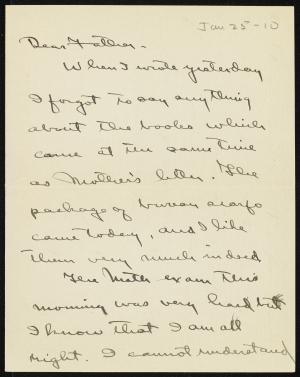 Jan 25-10
Dear Father-
When I wrote yesterday
I forgot to say anything
about the books which
came at the same time
as Mother's letter. The
package of bureau scarfs
came today, and I like
them very much indeed
The Math exam this
morning was very hard but
I know that I am all
right. I cannot understand